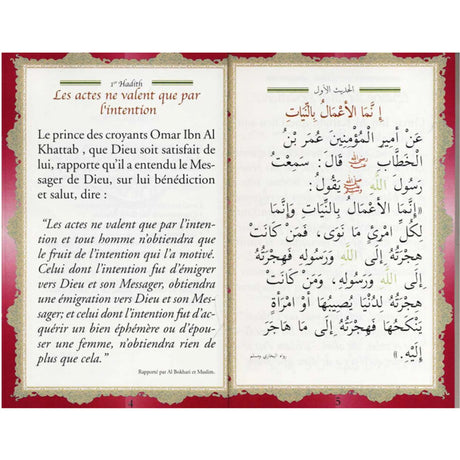 1er Hadith
Les actes ne valent que par
l'intention
Le prince des croyants Omar Ibn Al
Khattab , que Dieu soit satisfait de
lui, rapporte qu'il a entendu le Mes-
sager de Dieu, sur lui bénédiction
et salut, dire :
"Les actes ne valent que par l'inten-
tion et tout homme n'obtiendra que
le fruit de l'intention qui l'a motivé.
Celui dont l'intention fut d'émigrer
vers Dieu et son Messager, obtiendra
une émigration vers Dieu et son Mes-
sager; et celui dont l'intention fut d'ac-
quérir un bien éphémère ou d'épou-
ser une femme, n'obtiendra rien de
plus que cela."
Rapporté par Al Bokhari et Muslim.
4
الحديث الأول
إِنَّمَا الأَعْمَالُ بِالنِّيَّاتِ
عَنْ أَمِيرِ الْمُؤْمِنِينَ عُمَرَ بْنِ
الْخَطَّابِ ﷺ قَالَ: سَمِعْتُ
رَسُولَ اللَّهِ ﷺ يَقُولُ:
«إِنَّمَا الأَعْمَالُ بِالنِّيَّاتِ وَإِنَّمَا
لِكُلِّ امْرِئٍ مَا نَوَى، فَمَنْ كَانَتْ
هِجْرَتُهُ إِلَى اللَّهِ وَرَسُولِهِ فَهِجْرَتُهُ
إِلَى اللَّهِ وَرَسُولِهِ، وَمَنْ كَانَتْ
هِجْرَتُهُ لِدُنْيَا يُصِيبُهَا أَوْ امْرَأَةٍ
يَنْكَحُهَا فَهِجْرَتُهُ إِلَى مَا هَاجَرَ
إِلَيْهِ.»
رواه البخاري ومسلم
5